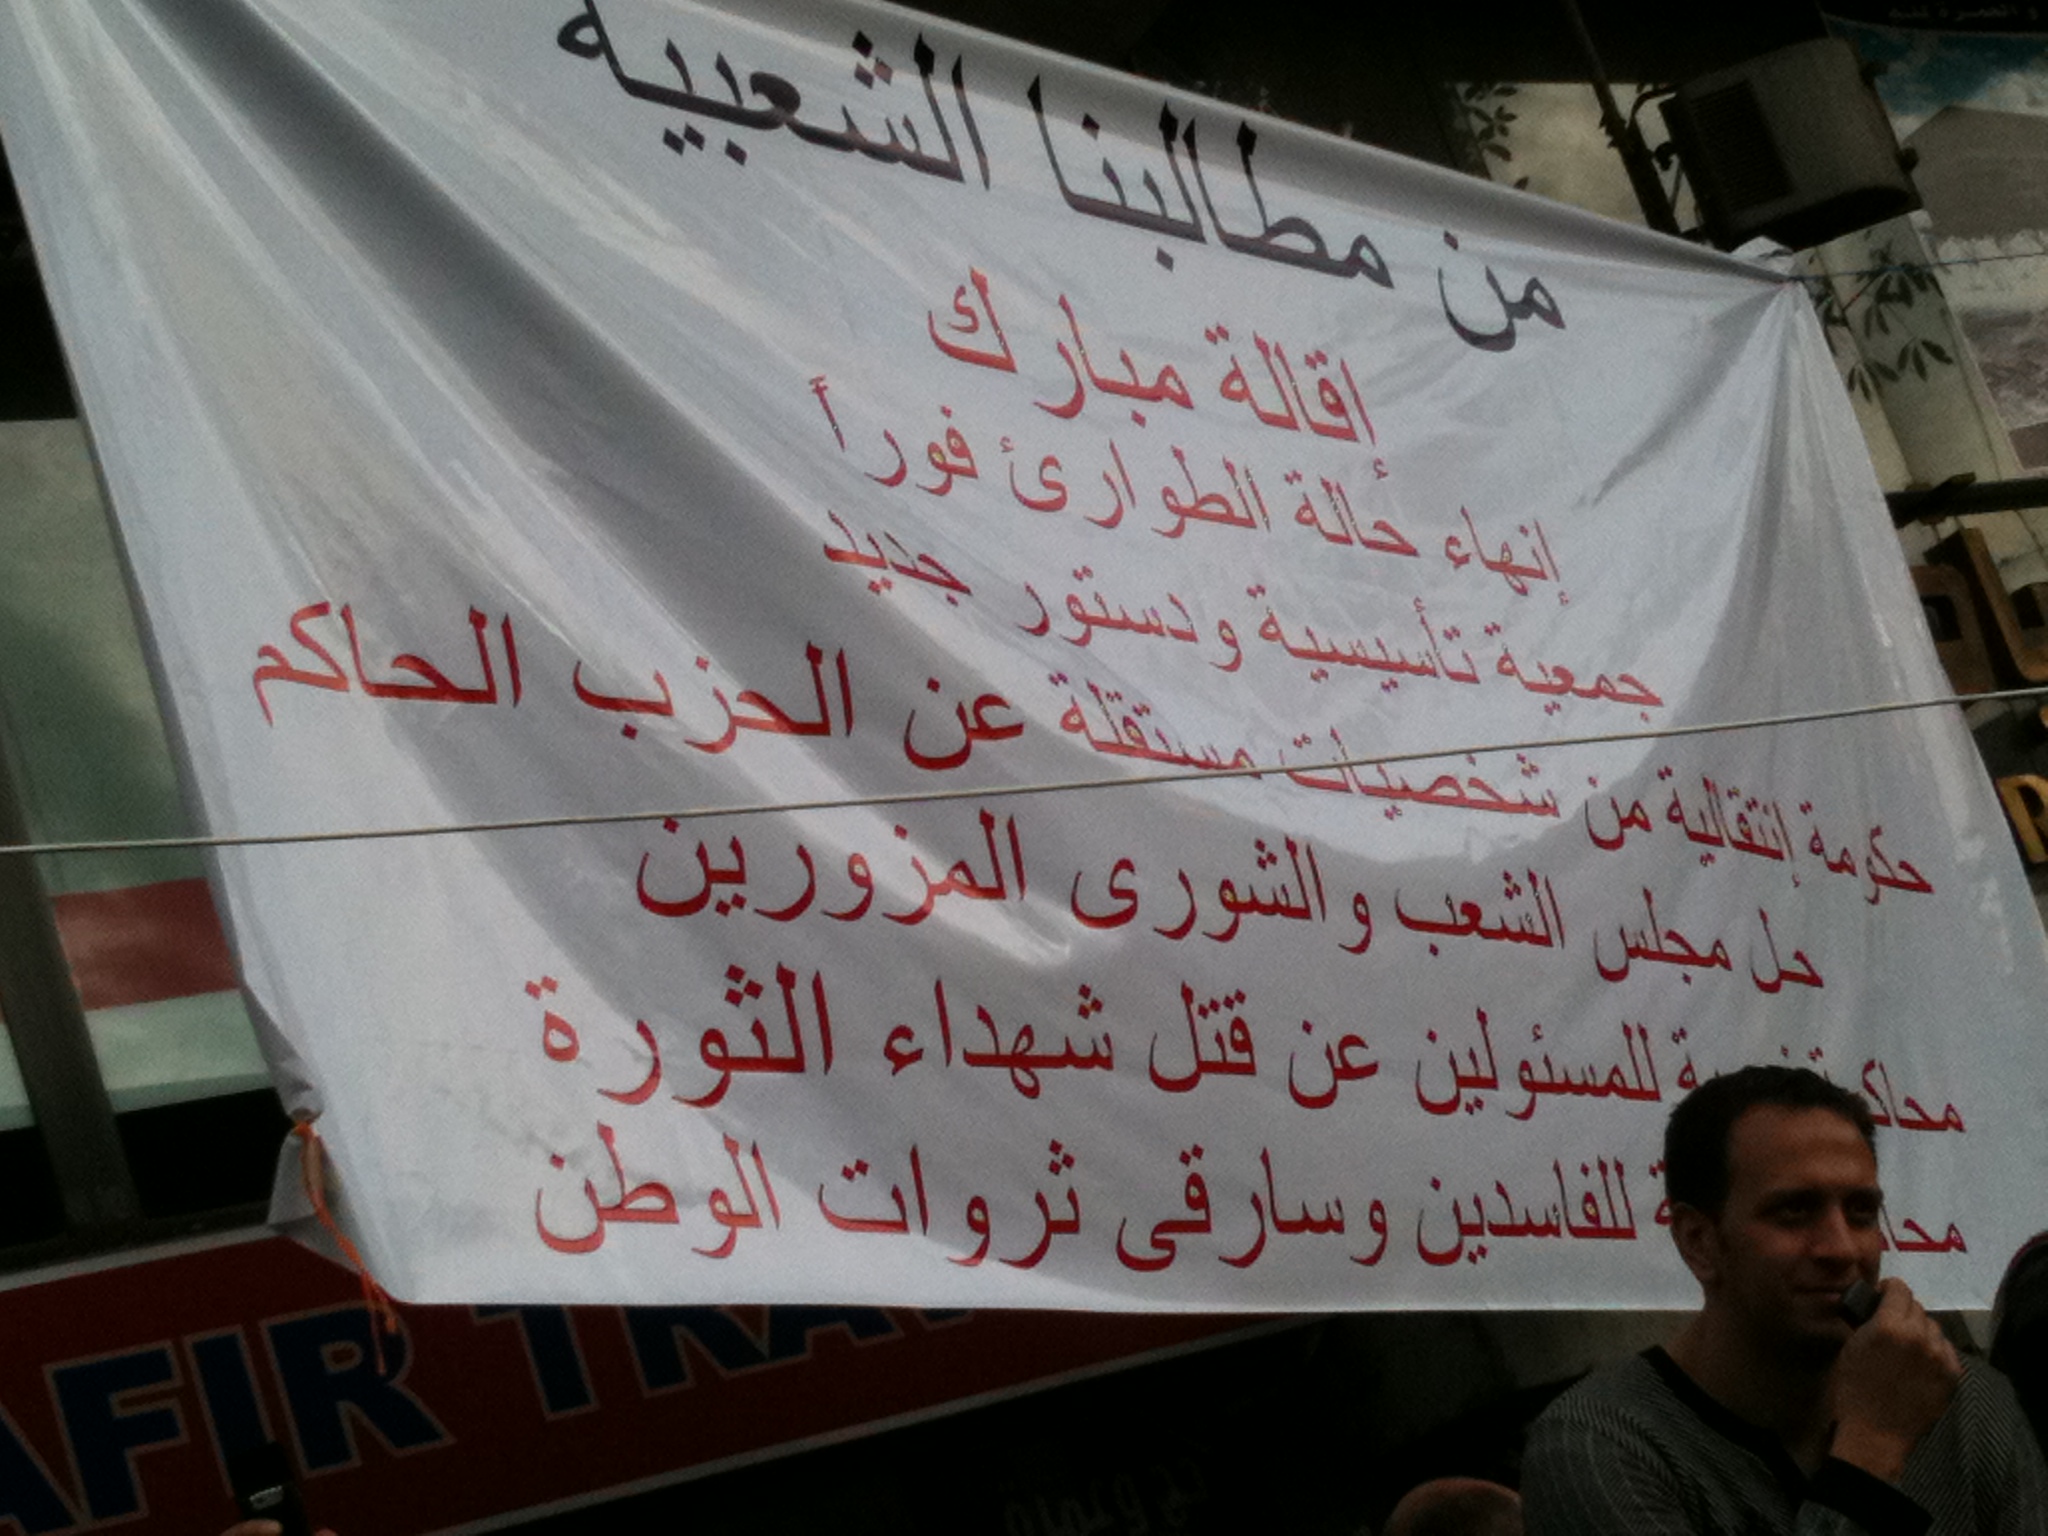 من مطالبنا الشعبية
إقالة مبارك
إنهاء حالة الطوارئ فوراً
جمعية تأسيسية ودستور جديد
حكومة إنتقالية من شخصيات مستقلة عن الحزب الحاكم
حل مجلس الشعب والشورى المزورين
للمسئولين عن قتل شهداء الثورة
للفاسدين وسارقى ثروات الوطن
AFIR TRA